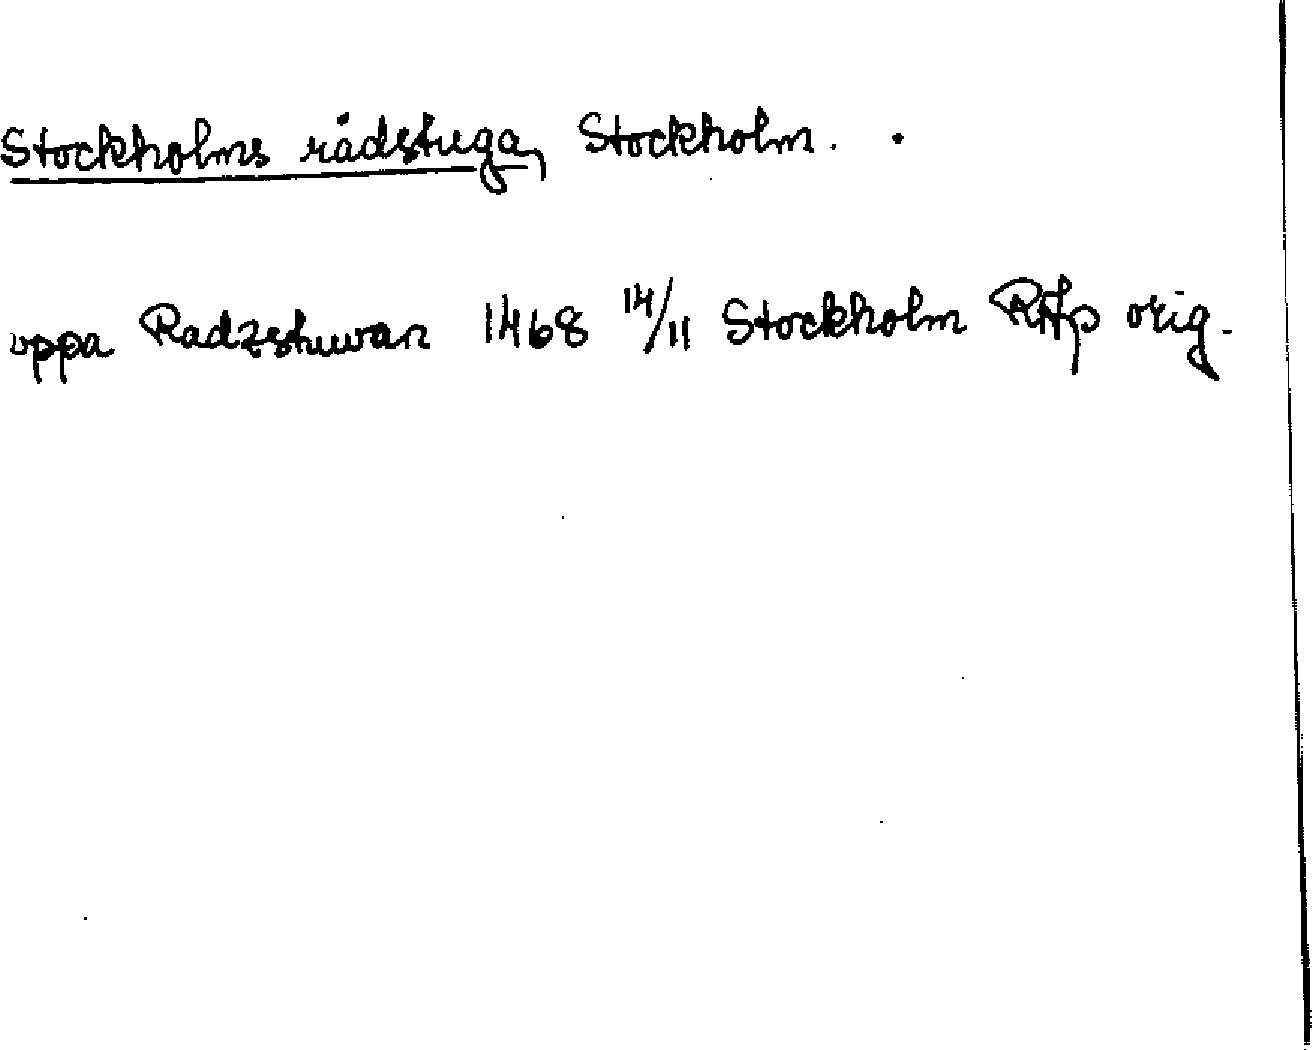 Stockholms rådstuga, Stockholm.
uppa Radzstuwan 1468 14/11 Stockholm RAp orig.